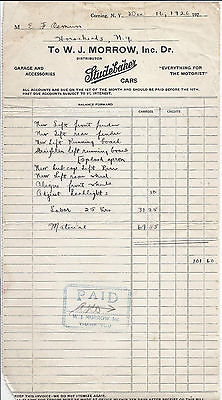 Corning, N. Y., Dec 11, 1926 192
M E F
Horseheads N.Y.
To W. J. MORROW, Inc. Dr.
DISTRIBUTOR
GARAGE AND ACCESSORIES
Studebaker
CARS
"EVERYTHING FOR THE MOTORIST"
ALL ACCOUNTS ARE DUE ON THE 1ST OF THE MONTH AND SHOULD BE PAID BEFORE 10TH.
PAST DUE ACCOUNTS SUBJECT TO 6% INTEREST.
BALANCE FORWARD CHARGES CREDITS
New left front fender
New left rear fender
New left Running board
Straighten left running board
Splash apron
New hub cap left Rear
New left rear wheel
Aligne front wheels
Adjust headlights
Labor 25 Hrs
Material
101 60
PAID
W J MORROW INC
THANK YOU